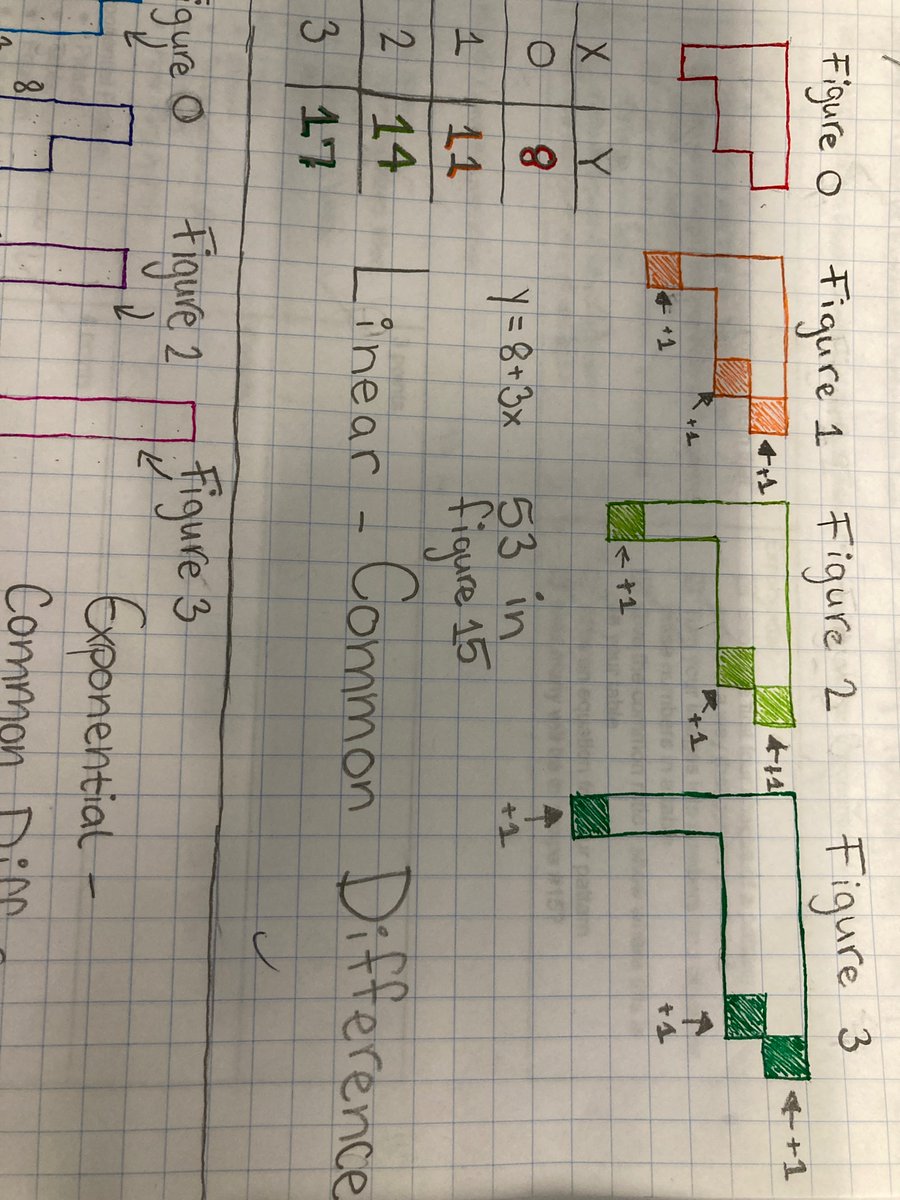 Figure 0 Figure 1 Figure 2 Figure 3
+1 +1 +1 +1
+1 +1 +1
+1 +1
X Y
0 8
1 11
2 14
3 17
y = 8+3x
53 in
figure 15
Linear - Common Difference
Figure 0 Figure 2 Figure 3
8
Exponential -
Common